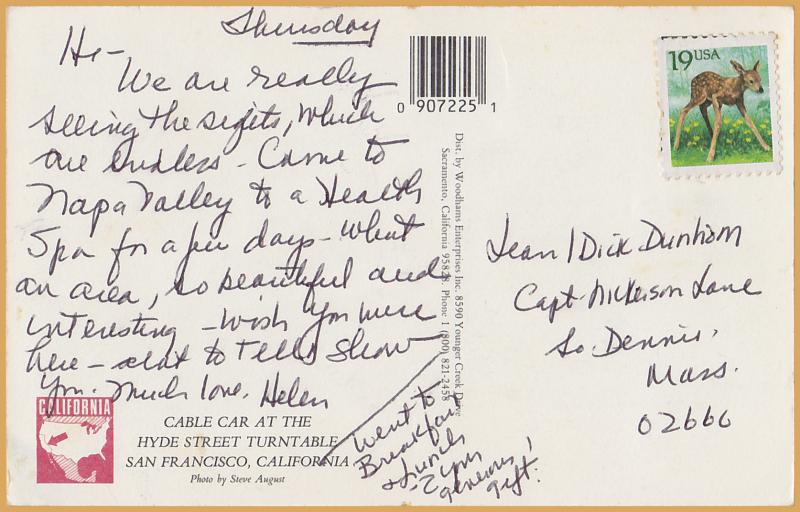 Thursday
Hi-
We are really
seeing the sights, which
are endless - Came to
Napa Valley to a Health
Spa for a few days - What
an area, so beautiful and
interesting - Wish you were
here - to Tell & Show
You. Much love, Helen
CALIFORNIA
CABLE CAR AT THE
HYDE STREET TURNTABLE
SAN FRANCISCO, CALIFORNIA
Photo by Steve August
Went to
Breakfast
& Lunch
generous
gift!
0 907225 1
Dist. by Woodhams Enterprises Inc. 8590 Younger Creek Drive
Sacramento, California 95828. Phone 1 (800) 821-2458
19 USA
Jean / Dick Dunham
Capt. Nickerson Lane
So. Dennis,
Mass.
02660